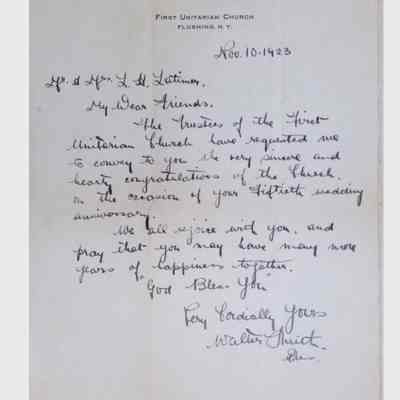 FIRST UNITARIAN CHURCH
FLUSHING, N. Y.
Nov. 10-1923
Mr. & Mrs. L. H. Latimer.
My Dear Friends.
The Trustees of the First
Unitarian Church have requested me
to convey to you the very sincere and
hearty congratulations of the Church,
on the occasion of your Fiftieth wedding
anniversary.
We all rejoice with you, and
pray that you may have many more
years of happiness together.
"God Bless You"
Very Cordially Yours
Walter